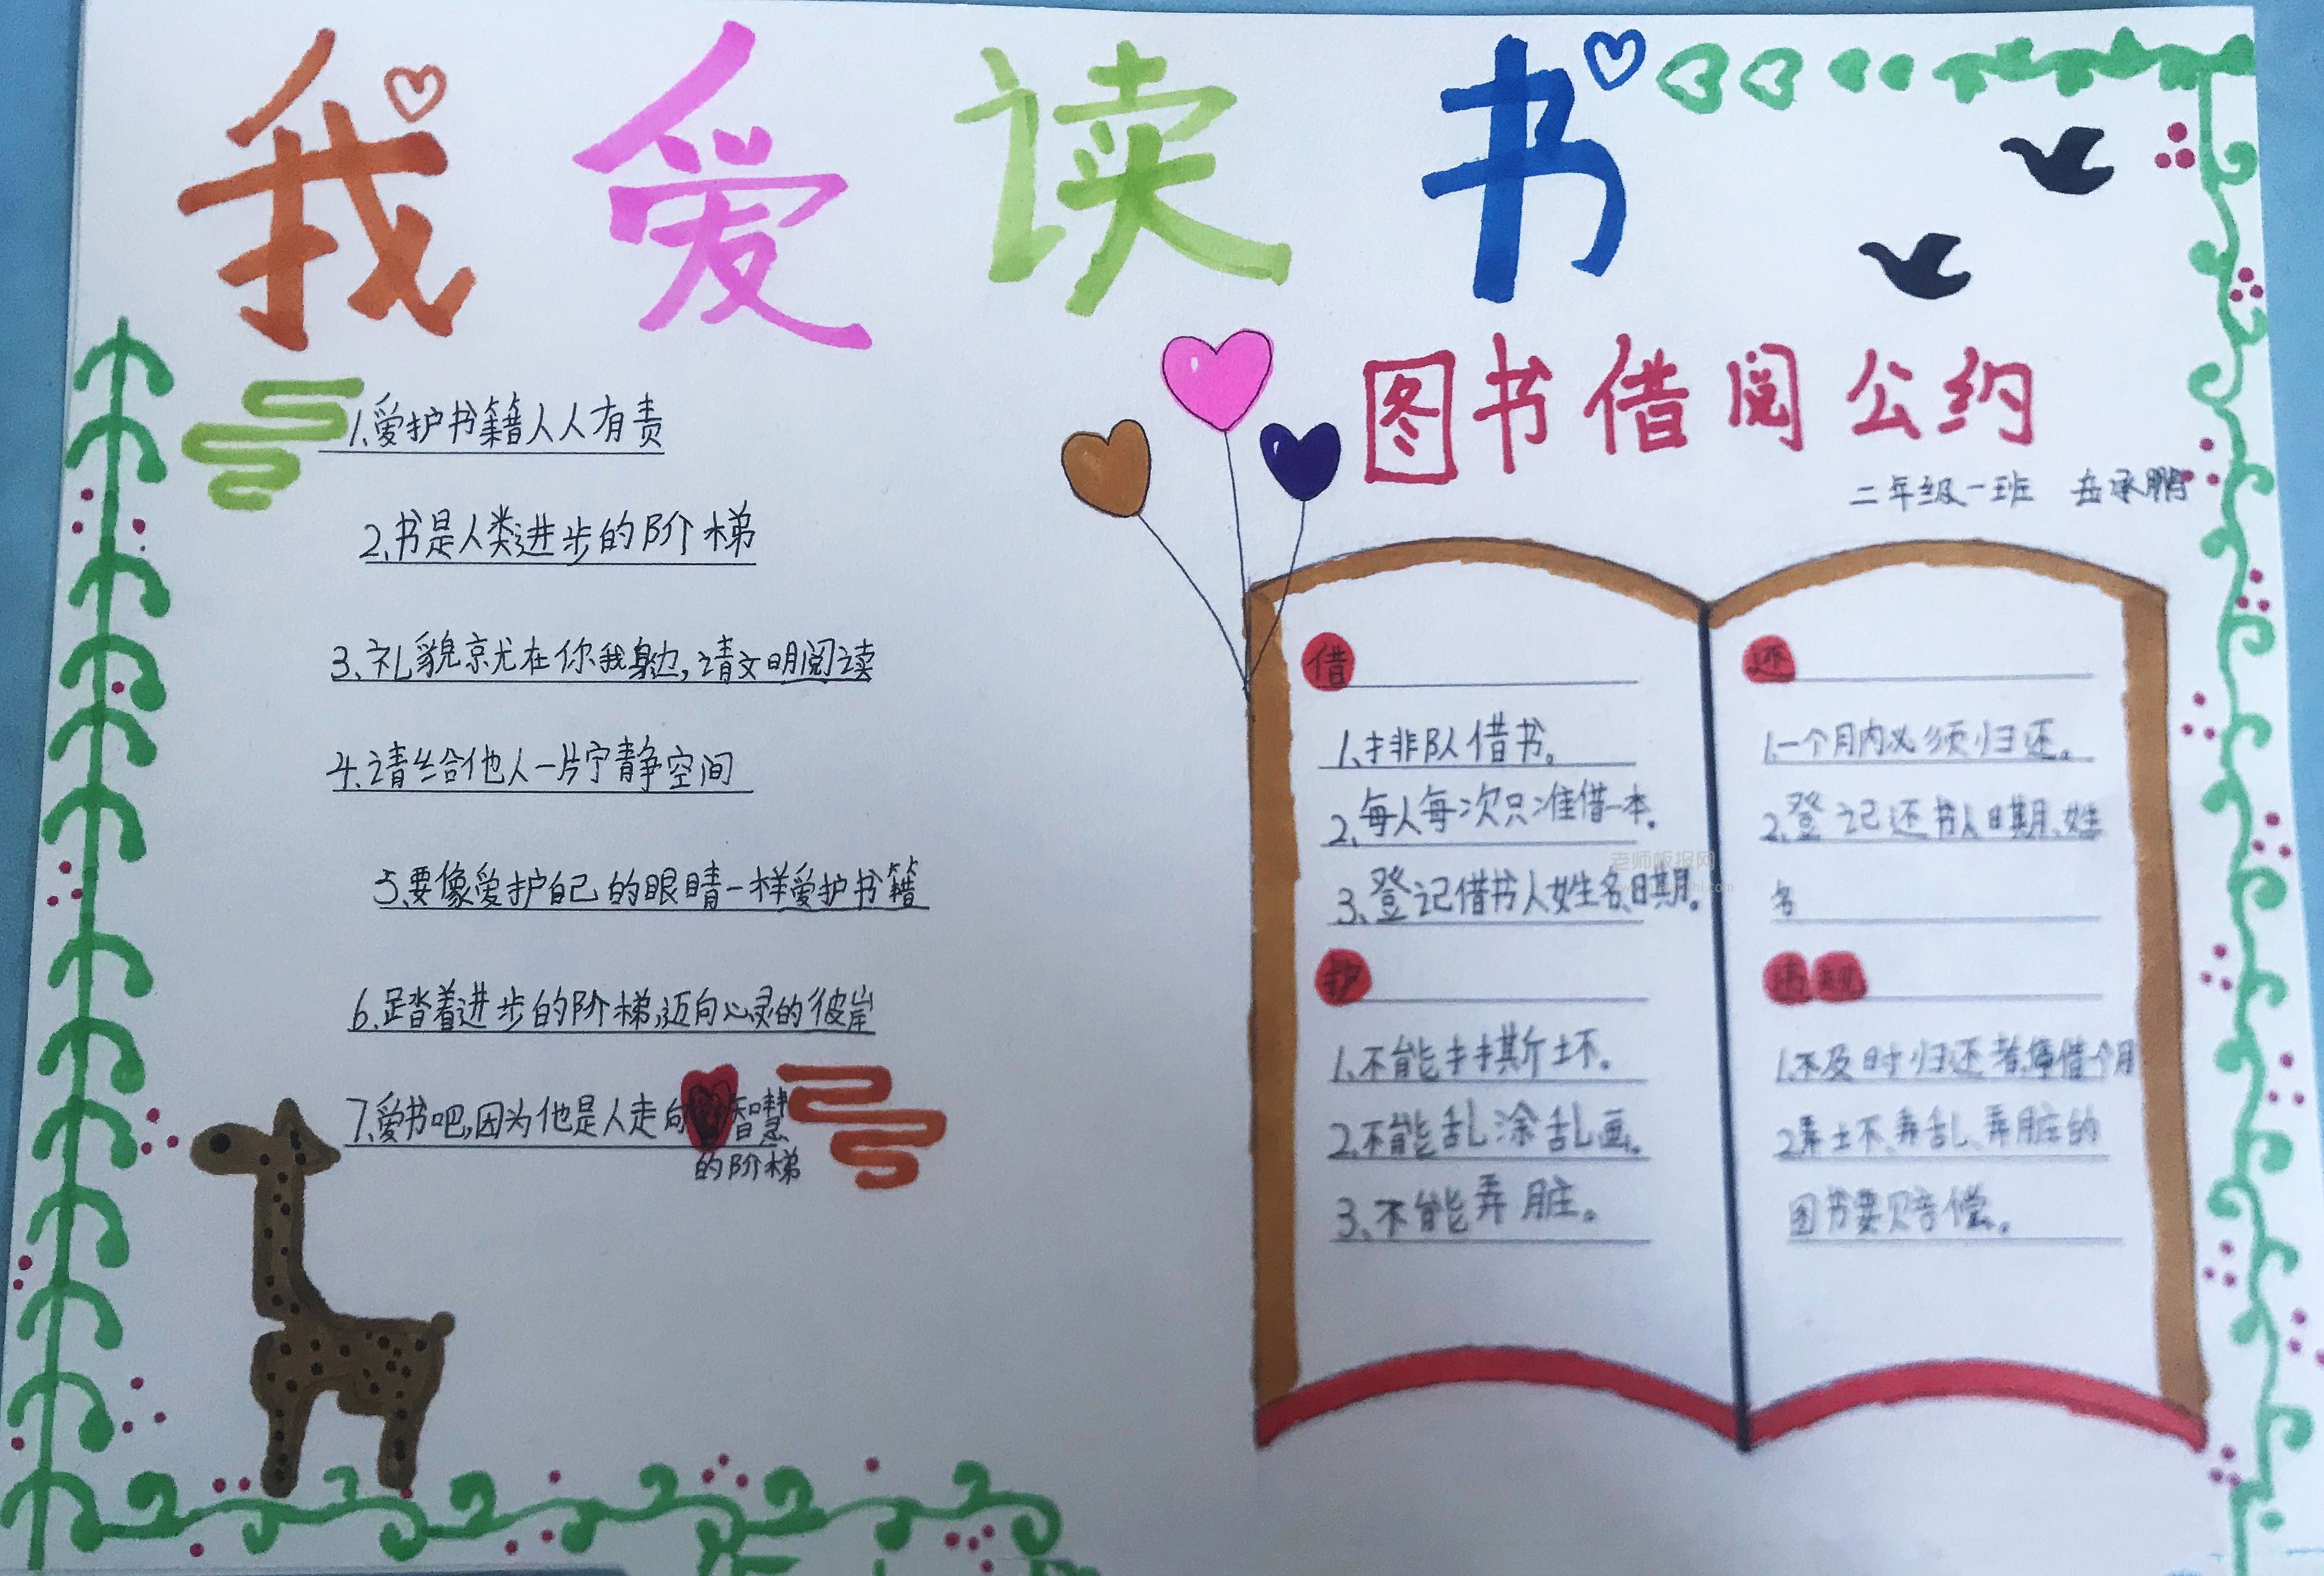 我爱读书
1、爱护书籍人人有责
2、书是人类进步的阶梯
3、礼貌就在你我身边,请文明阅读
4、请给他人一片宁静空间
5、要像爱护自己的眼睛一样爱护书籍
6、踏着进步的阶梯,迈向心灵的彼岸
7、爱书吧,因为他是人走向智慧
的阶梯
图书借阅公约
二年级一班 岳承鹏
借
1、排队借书。
2、每人每次只准借一本。
3、登记借书人姓名、日期。
护
1、不能撕坏。
2、不能乱涂乱画。
3、不能弄脏。
还
1、一个月内必须归还。
2、登记还书人日期、姓
名
违规
1、不及时归还者,停借个月
2、弄坏、弄乱、弄脏的
图书要赔偿。
老师板报网